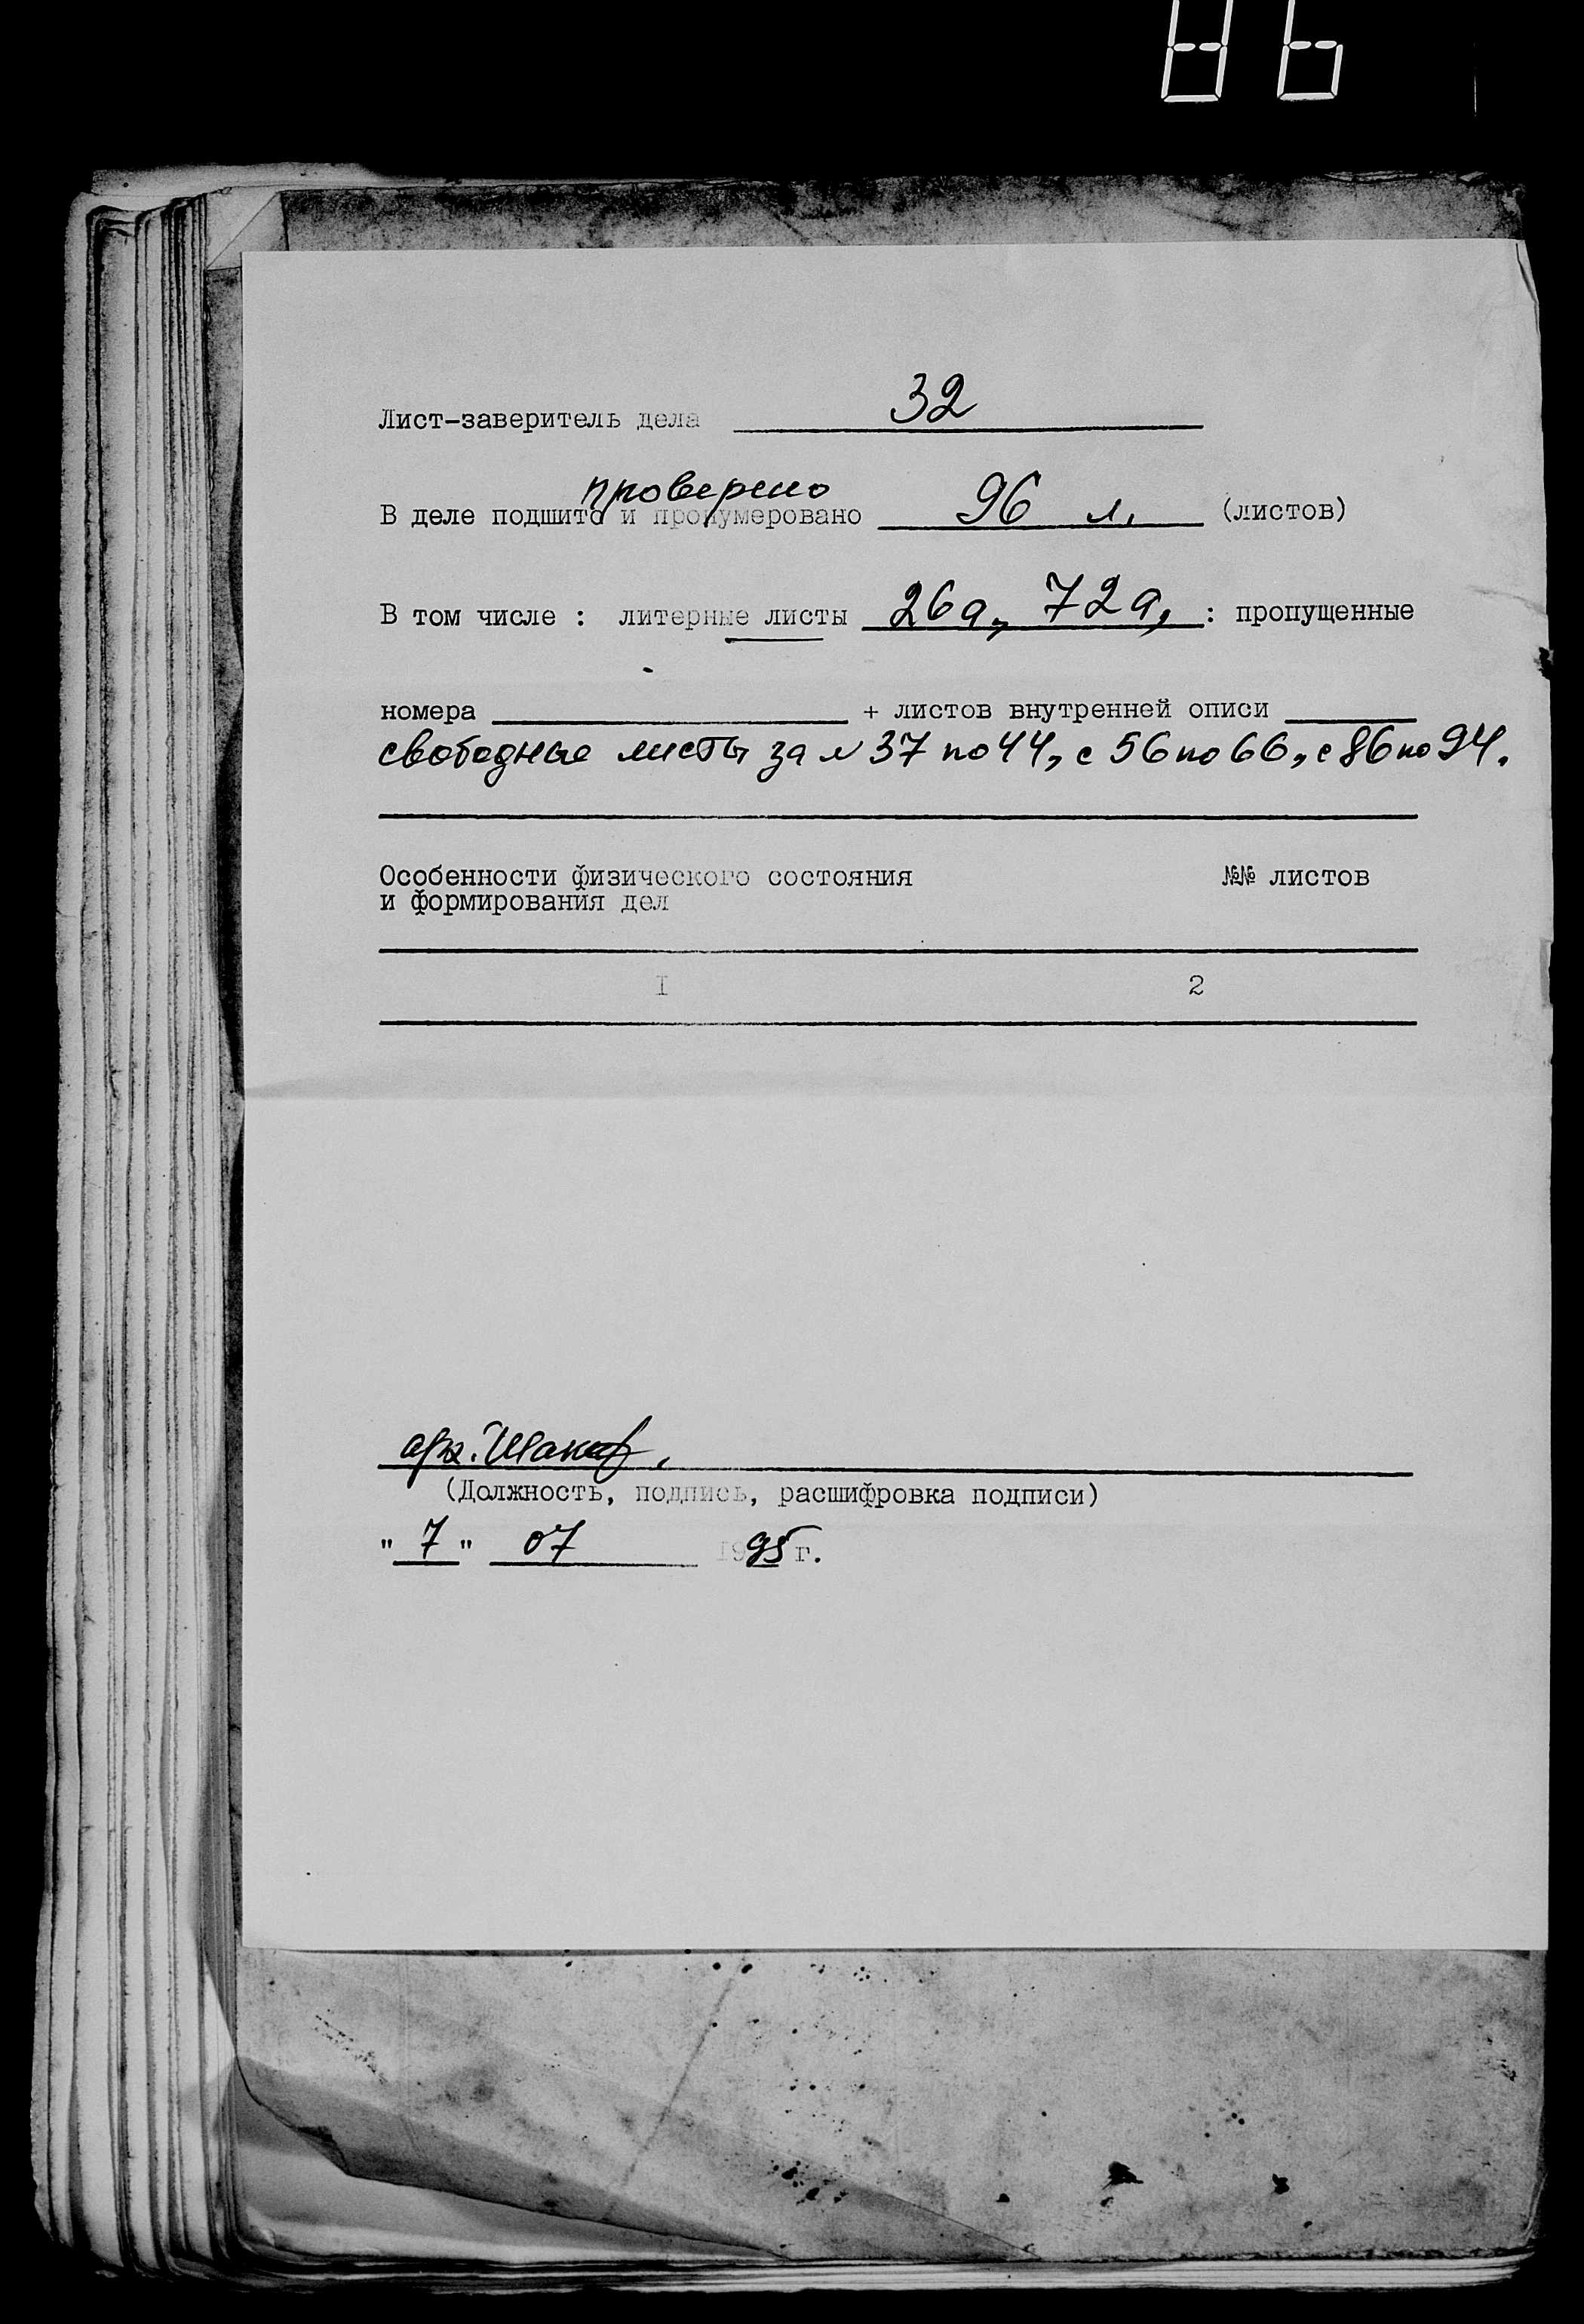 Лист-заверитель дела 32
проверено
В деле подшито и пронумеровано 96 л. (листов)
В том числе : литерные листы 26а, 72а, : пропущенные
номера + листов внутренней описи
свободные листы за № 37 по 44, с 56 по 66, с 86 по 94.
Особенности физического состояния №№ листов
и формирования дел
I 2
арх.
(Должность, подпись, расшифровка подписи)
" 7 " 07 1995 г.